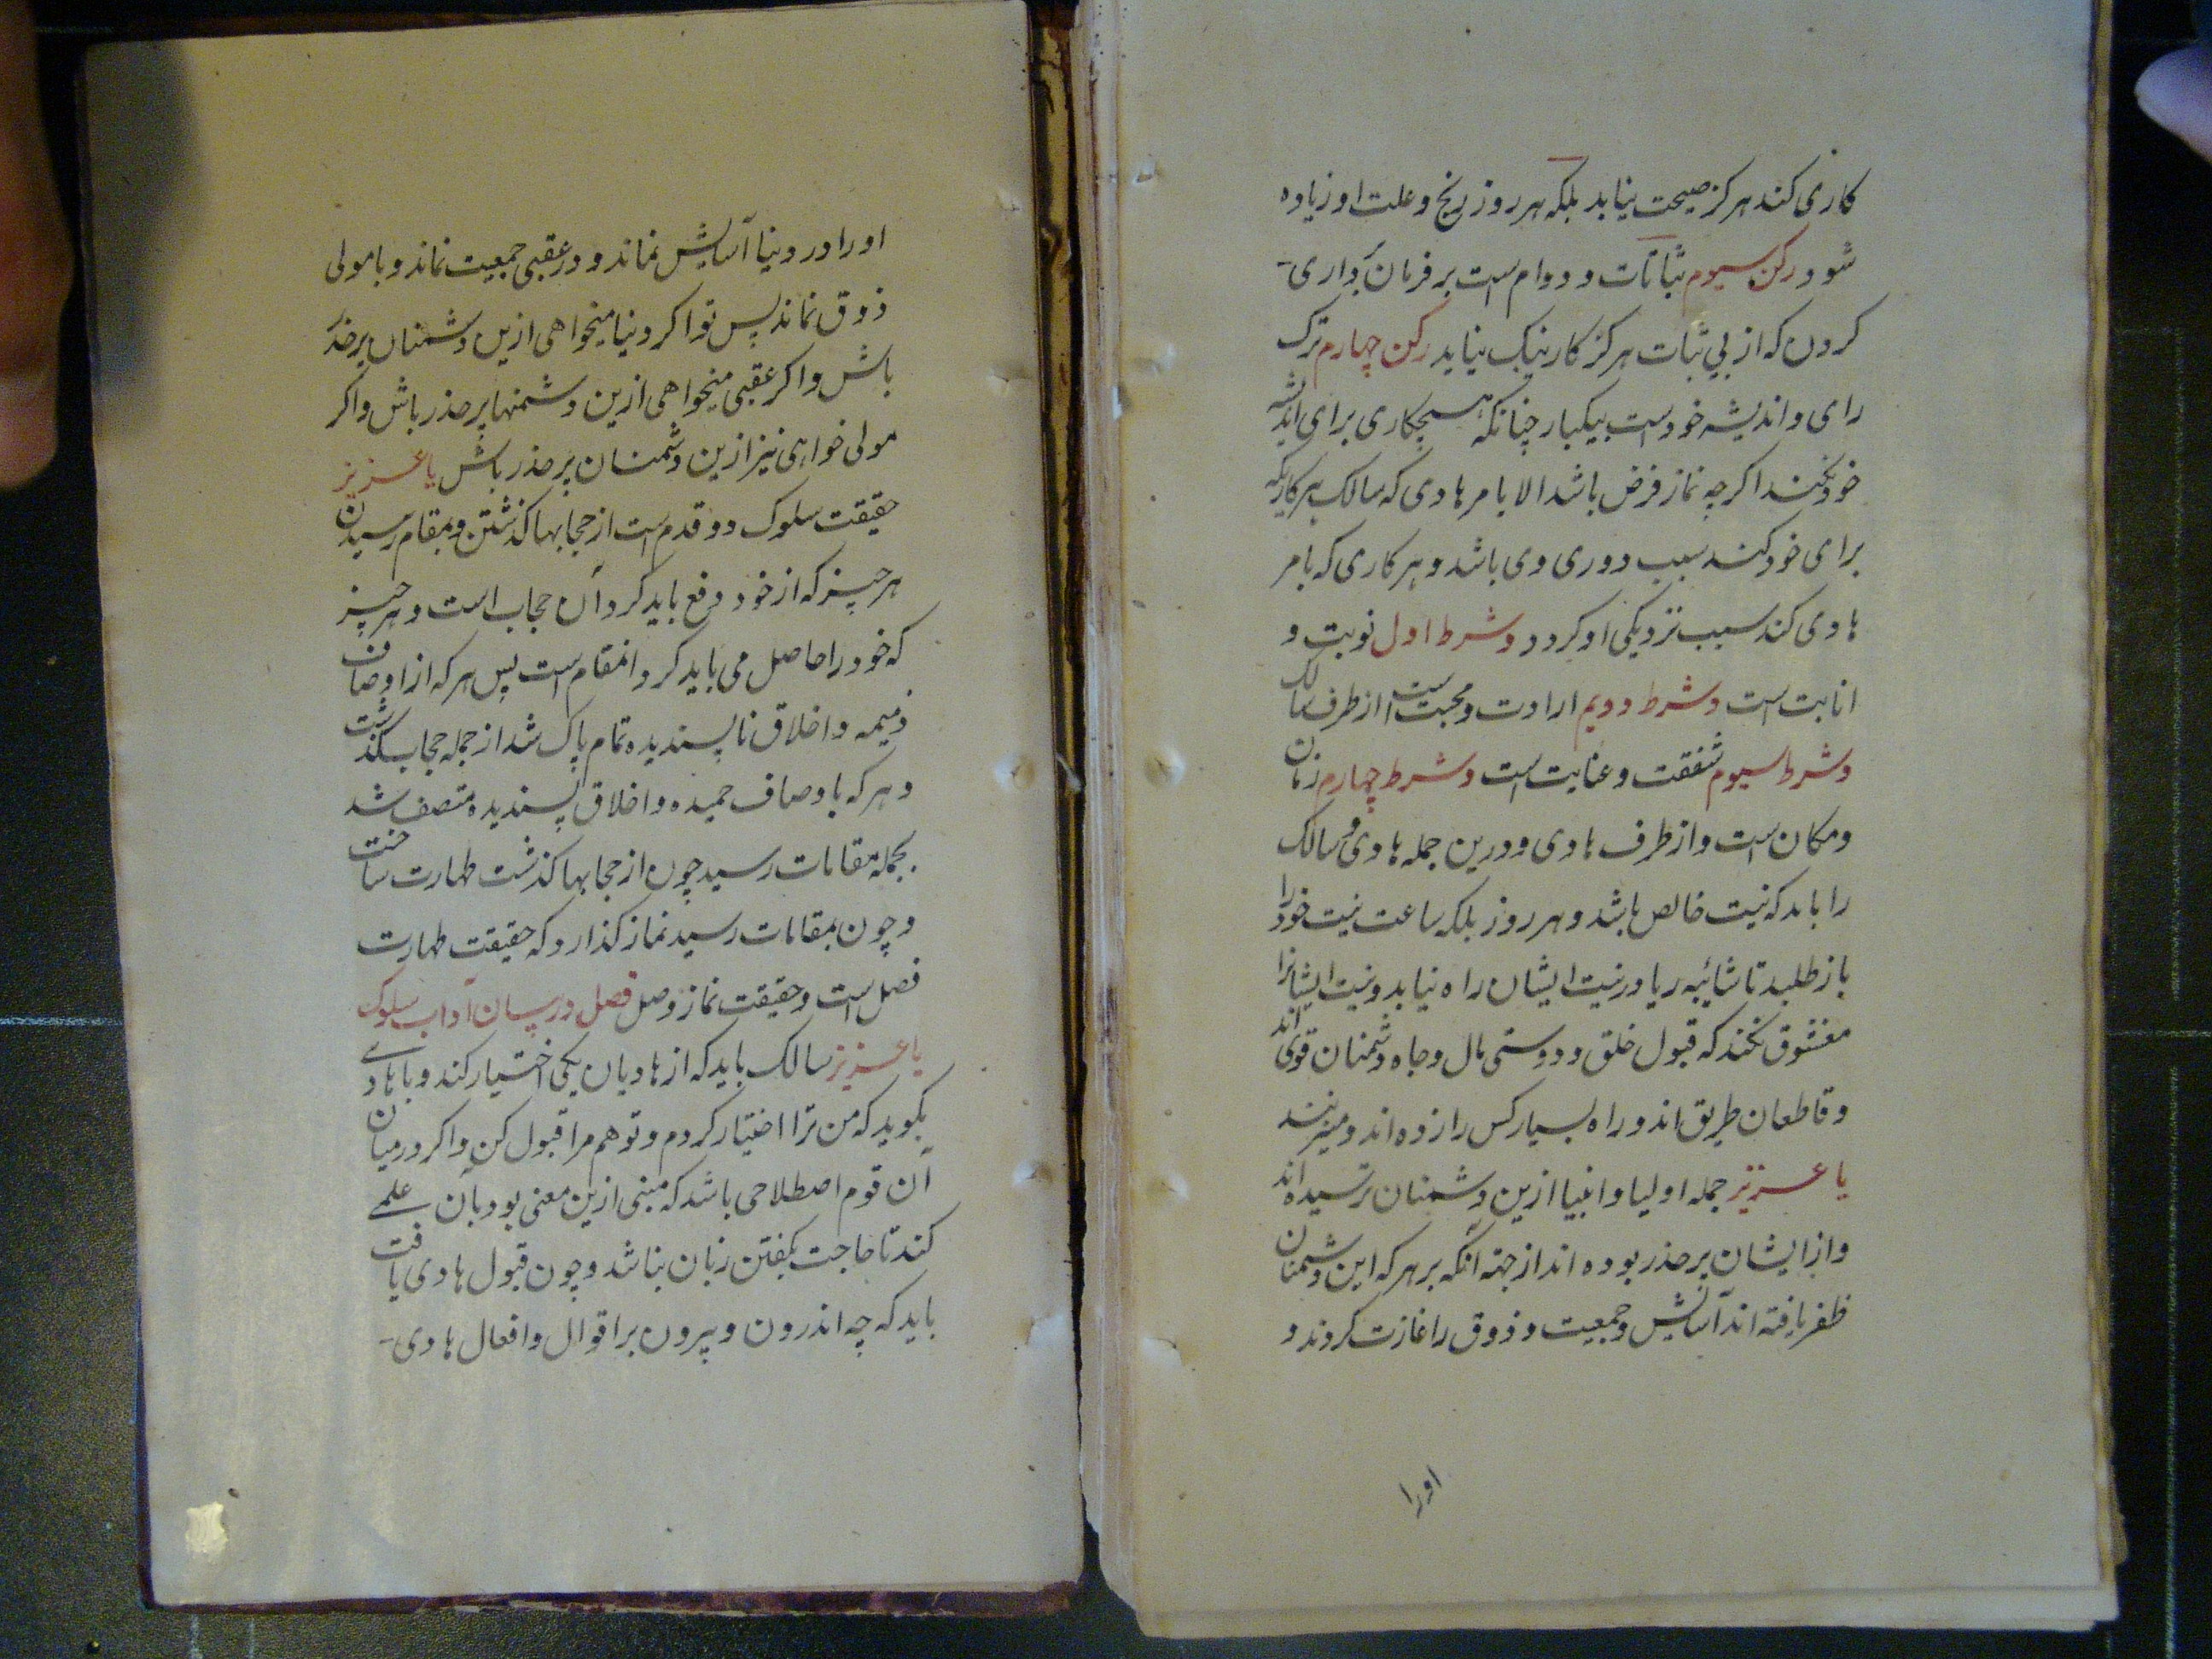 کاری کند هرکز صحت نیابد بلکه هر روز رنج و علت او زیاده
شود رکن سیوم ثبات و دوام است بر فرمان برداری
کردن که از بی ثبات هرکز کار نیک نیاید رکن چهارم ترک
رای و اندیشه خود است بیکبار چنانکه هیچکاری برای اندیشه
خود نکند اکرچه نماز فرض باشد الا بامر هادی که سالک هر کاریکه
برای خود کند سبب دوری وی باشد و هر کاری که بامر
هادی کند سبب نزدیکی او کردد و شرط اول توبت و
انابت است و شرط دویم ارادت و محبت است از طرف سالک
و شرط سیوم شفقت و عنایت است و شرط چهارم زمان
و مکان است و از طرف هادی و درین جمله هادی و سالک
را باید که نیت خالص باشد و هر روز بلکه ساعت نیت خود را
باز طلبد تا شائبه ریا در نیت ایشان راه نیابد و نیت ایشانرا
نکند که قبول خلق و دوستی مال و جاه دشمنان قوی اند
و قاطعان طریق اند و راه بسیار کس را زده اند و میزنند
یا عزیز جمله اولیا و انبیا ازین دشمنان ترسیده اند
و از ایشان پر حذر بوده اند از جهته آنکه بر هر که این دشمنان
ظفر یافته اند آسایش و جمعیت و ذوق را غارت کردند و
اورا
اورا در دنیا آسایش نماند و در عقبی جمعیت نماند و با مولی
ذوق نماند پس تو اکر دنیا میخواهی ازین دشمنان پر حذر
باش و اکر عقبی میخواهی ازین دشمنها پر حذر باش و اکر
مولی خواهی نیز ازین دشمنان پر حذر باش یا عزیز
حقیقت سلوک دو قدم است از حجابها کذشتن و بمقام رسیدن
هر چیز که از خود دفع باید کرد آن حجاب است و هر چیز
که خود را حاصل می باید کرد انمقام است پس هر که از اوصاف
ذمیمه و اخلاق ناپسندیده تمام پاک شد از جمله حجاب بکذشت
و هر که باوصاف حمیده و اخلاق پسندیده متصف شد
بجمله مقامات رسید چون از حجابها کذشت طهارت ساخت
و چون بمقامات رسید نماز کذارد که حقیقت طهارت
فصل است و حقیقت نماز وصل فصل در بیان آداب سلوک
یا عزیز سالک باید که از هادیان یکی اختیار کند و با هادی
بکوید که من ترا اختیار کردم و تو هم مرا قبول کن و اکر در میان
آن قوم اصطلاحی باشد که مبنی ازین معنی بود بآن علمے
کند تا حاجت بکفتن زبان نباشد و چون قبول هادی یافت
باید که چه اندرون و بیرون بر اقوال و افعال هادی